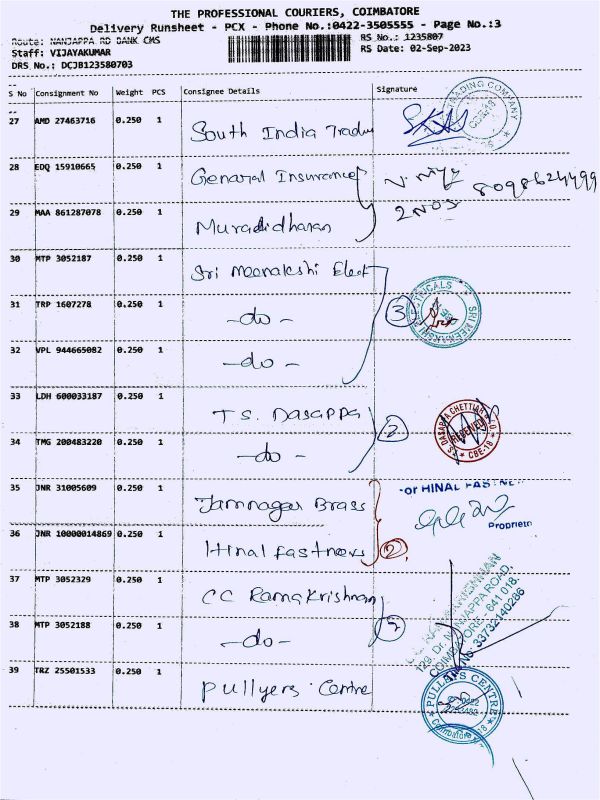 THE PROFESSIONAL COURIERS, COIMBATORE
Delivery Runsheet - PCX - Phone No.:0422-3505555 - Page No.:3
Route: NANJAPPA RD BANK CMS RS No.: 1235807
Staff: VIJAYAKUMAR RS Date: 02-Sep-2023
DRS No.: DCJB123580703
S No Consignment No Weight PCS Consignee Details Signature
27 AMD 27463716 0.250 1 South India Tradin
TRADING COMPANY
28 EDQ 15910665 0.250 1 General Insurance
8098624499
29 MAA 861287078 0.250 1 Muradidharan 2 NOS
30 MTP 3052187 0.250 1 Sri Meenakshi Elect
31 TRP 1607278 0.250 1 -do- 3
SRI MEENAKSHI ELECTRICALS
32 VPL 944665082 0.250 1 -do-
33 LDH 600033187 0.250 1 T S. DASAPPA 2
T.S. DASAPPA CHETTIAR & CO. CBE-18
34 TMG 200483220 0.250 1 -do-
35 JNR 31005609 0.250 1 Jamnagar Brass
For HINAL FASTNE
Proprieto
36 JNR 10000014869 0.250 1 Hinal Fastners 2
37 MTP 3052329 0.250 1 CC Ramakrishnan
129, Dr. NANJAPPA ROAD,
COIMBATORE - 641 018.
33732140286
38 MTP 3052188 0.250 1 -do-
39 TRZ 25501533 0.250 1 Pullyers Centre
PULLEYS CENTRE
Coimbatore-18